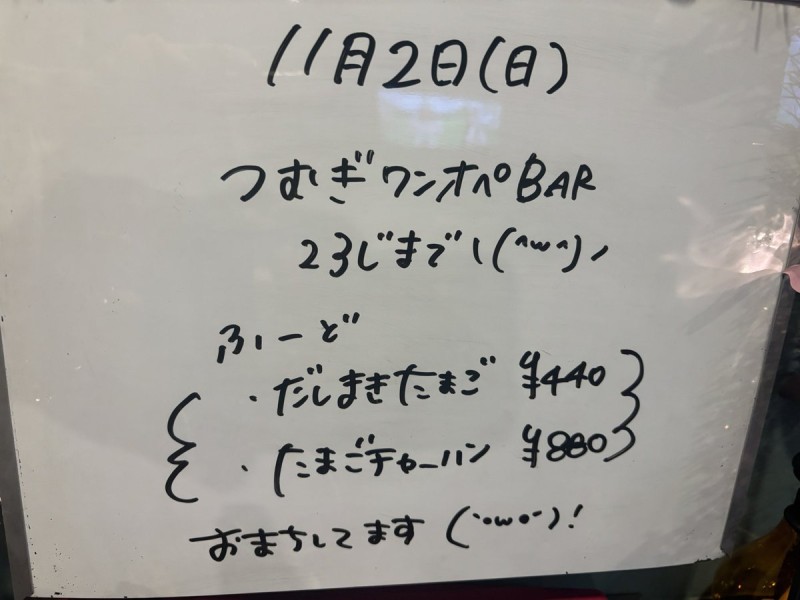 11月2日(日)
つむぎワンオペBAR
23じまで\(^w^)ノ
ふーど
・だしまきたまご ¥440
・たまごチャーハン ¥880
おまちしてます (`・ω・´)!